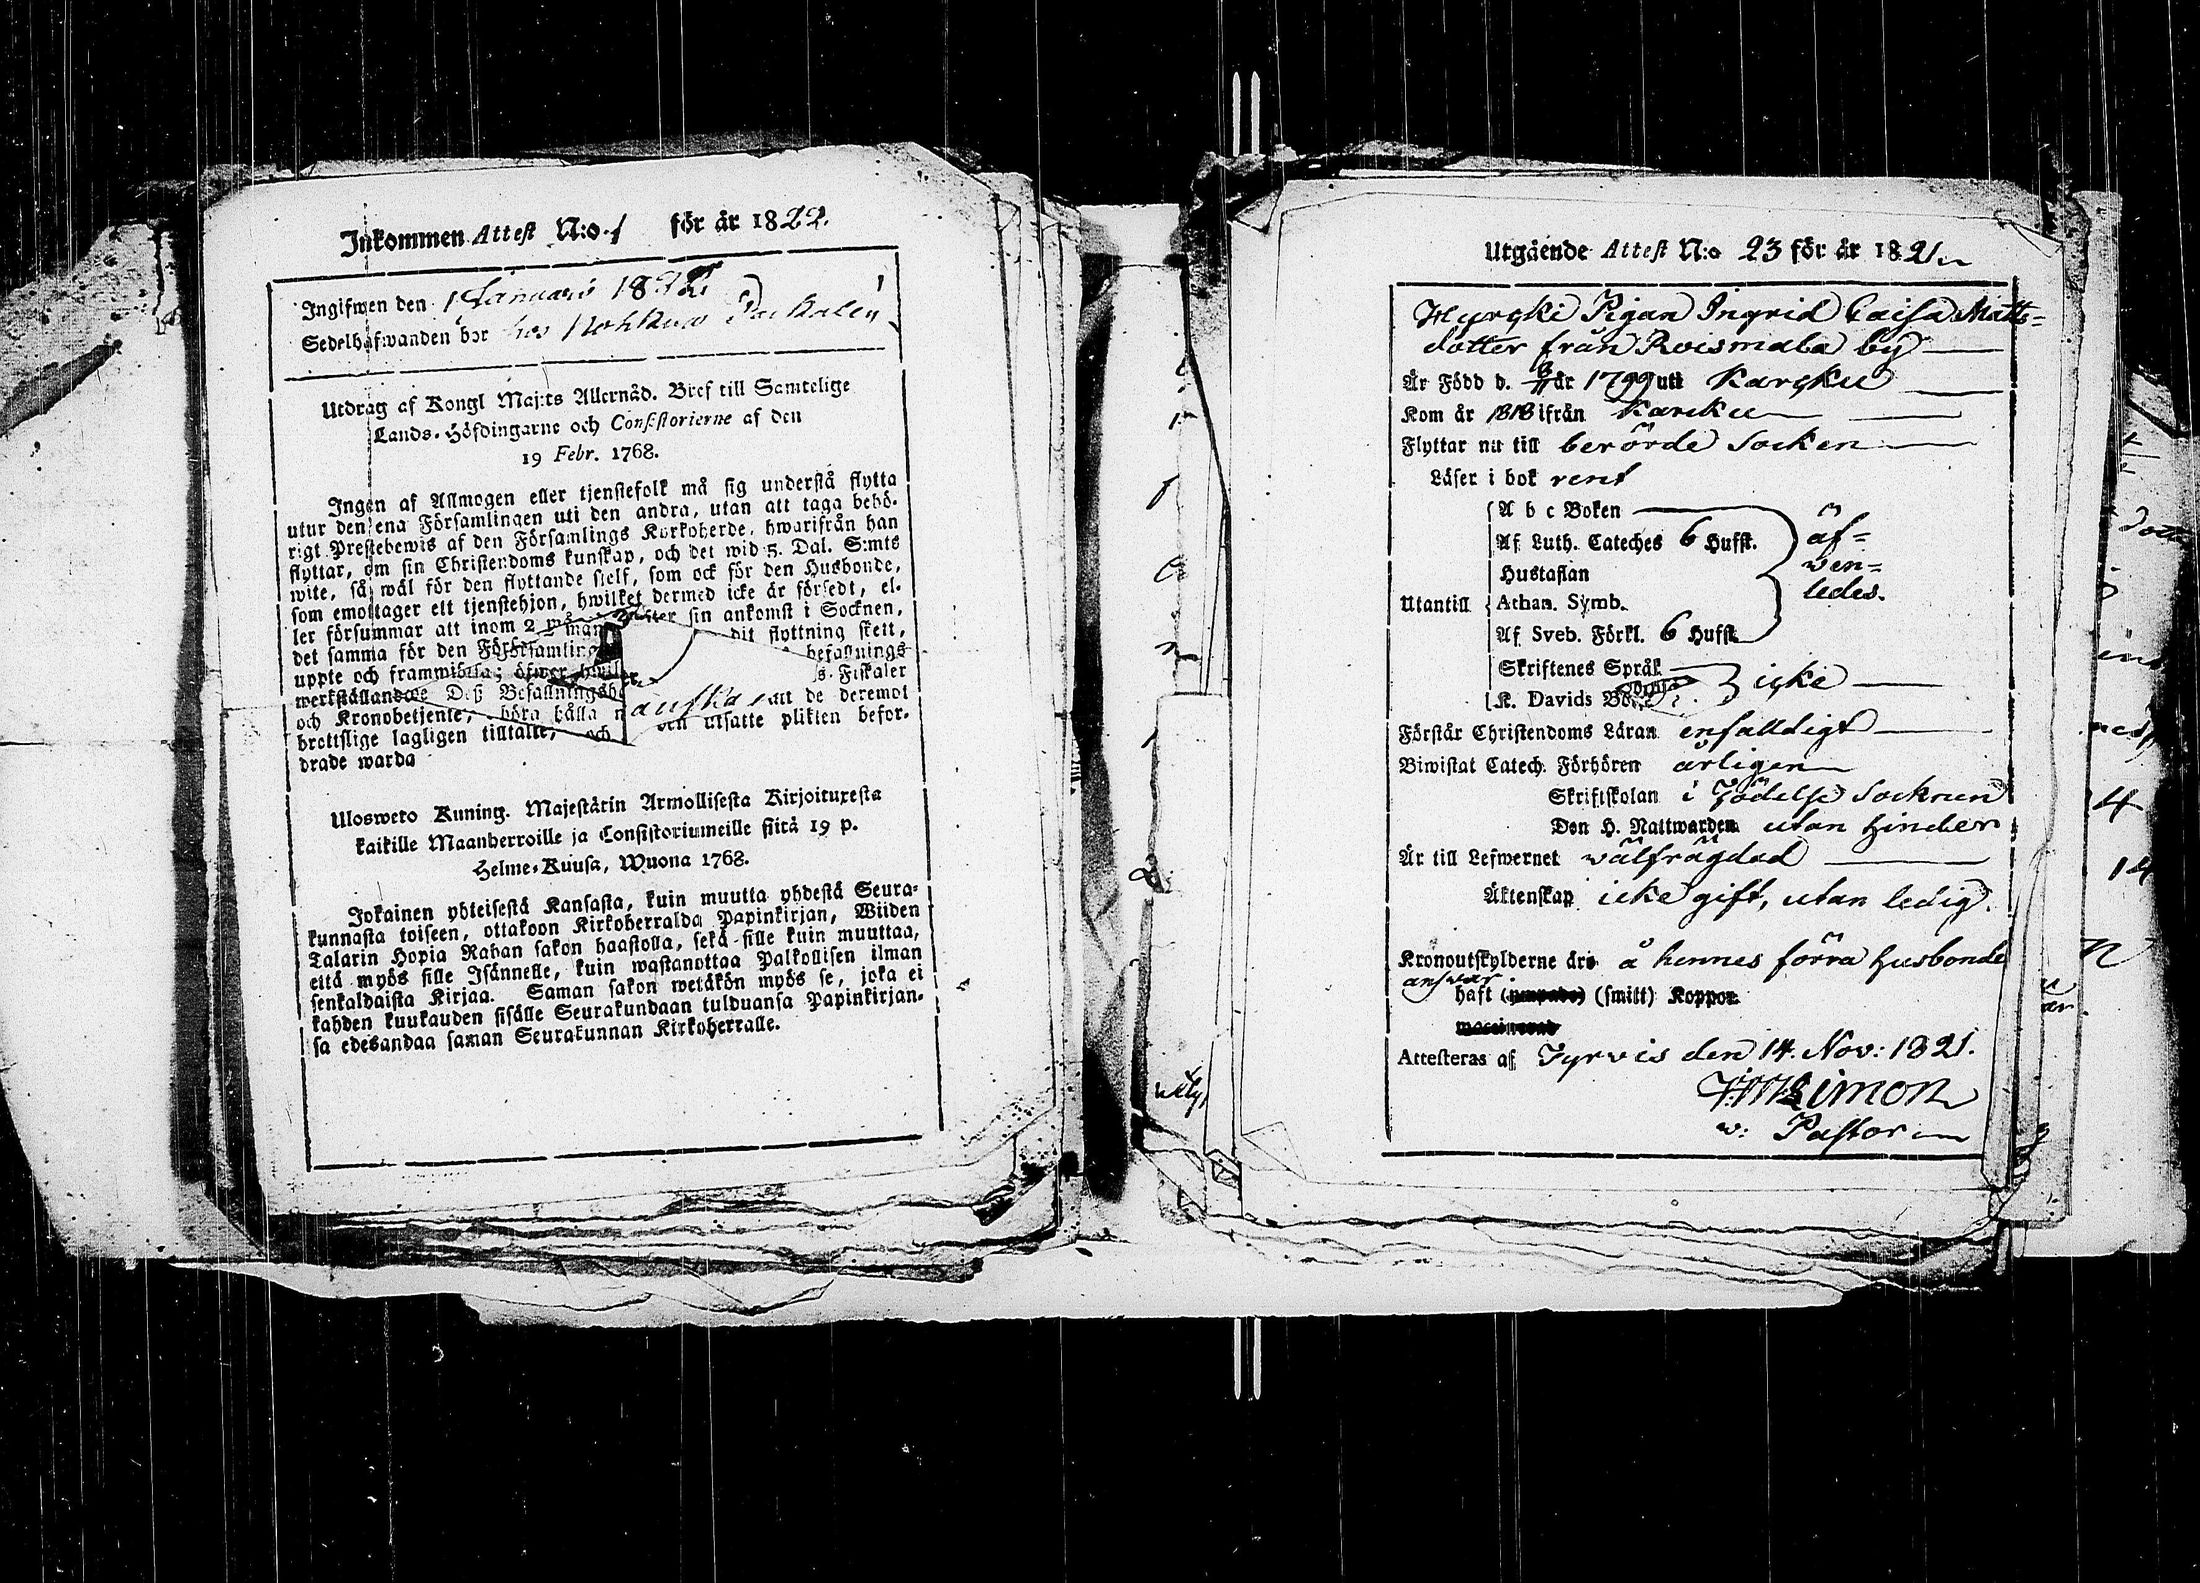 Inkommen Attest N:o 1 för år 1822.
Ingifwen den 1 Januarii 182
Sedelhafwanden bor hos
Utdrag af Kongl Maj:ts Allernåd. Bref till Samtelige
Lands-Höfdingarne och Consistorierne af den
19 Febr. 1768.
Ingen af Allmogen eller tjenstefolk må sig understå flytta
utur den ena Församlingen uti den andra, utan att taga behö-
rigt Prestebewis af den Församlings Kyrkoherde, hwarifrån han
flyttar, om sin Christendoms kunskap, och det wid 5. Dal. S:mts
wite, så wäl för den flyttande sielf, som ock för den Husbonde,
som emottager ett tjenstehjon, hwilket dermed icke är försedt, el-
ler försummar att inom 2 mån efter sin ankomst i Socknen,
det samma för den Församling dit flyttning skett,
uppte och framwisa; öfwer hwil befallnings
werkställande Deß Befallningsh s. Fiskaler
och Kronobetjente, böra hålla att de deremot
brottslige lagligen tilltalte, och den utsatte plikten befor-
drade warda
Ulosweto Kuning. Majestätin Armollisesta Kirjoituxesta
kaikille Maanherroille ja Consistoriumeille siitä 19 p.
Helme-Kuusa, Wuona 1768.
Jokainen yhteisestä Kansasta, kuin muutta yhdestä Seura-
kunnasta toiseen, ottakoon Kirkoherralda Papinkirjan, Wiiden
Talarin Hopia Rahan sakon haastolla, sekä sille kuin muuttaa,
että myös sille Isännelle, kuin wastanottaa Palkollisen ilman
senkaldaista Kirjaa. Saman sakon wetäkön myös se, joka ei
kahden kuukauden sisälle Seurakundaan tulduansa Papinkirjan-
sa edesandaa saman Seurakunnan Kirkoherralle.
Utgående Attest N:o 23 för år 1821.
Hyrcki Pigan Ingrid Caisa Matts=
dotter från Roismala by
Är Född d. år 1799 uti Karcku
Kom år 1818 ifrån Karcku
Flyttar nu till berörde Socken
Läser i bok rent
A b c Boken
Af Luth. Cateches 6 Hufst. äf=
Hustaflan wen=
Utantill Athan. Symb. ledes.
Af Sveb. Förkl. 6 Hufst.
Skriftenes Språk
K. Davids Bot icke
Förstår Christendoms Läran enfalldigt
Biwistat Catech. Förhören årligen
Skriftskolan i Födelse Socknen
Den H. Nattwarden utan hinder
Är till Lefwernet wälfrägdad
Äktenskap icke gift, utan ledig.
Kronoutskylderne äro å hennes förra husbonde
answar
haft (ympade) (smitt) Koppor
Attesteras af Tyrvis den 14. Nov: 1821.
Simon
w: Pastor